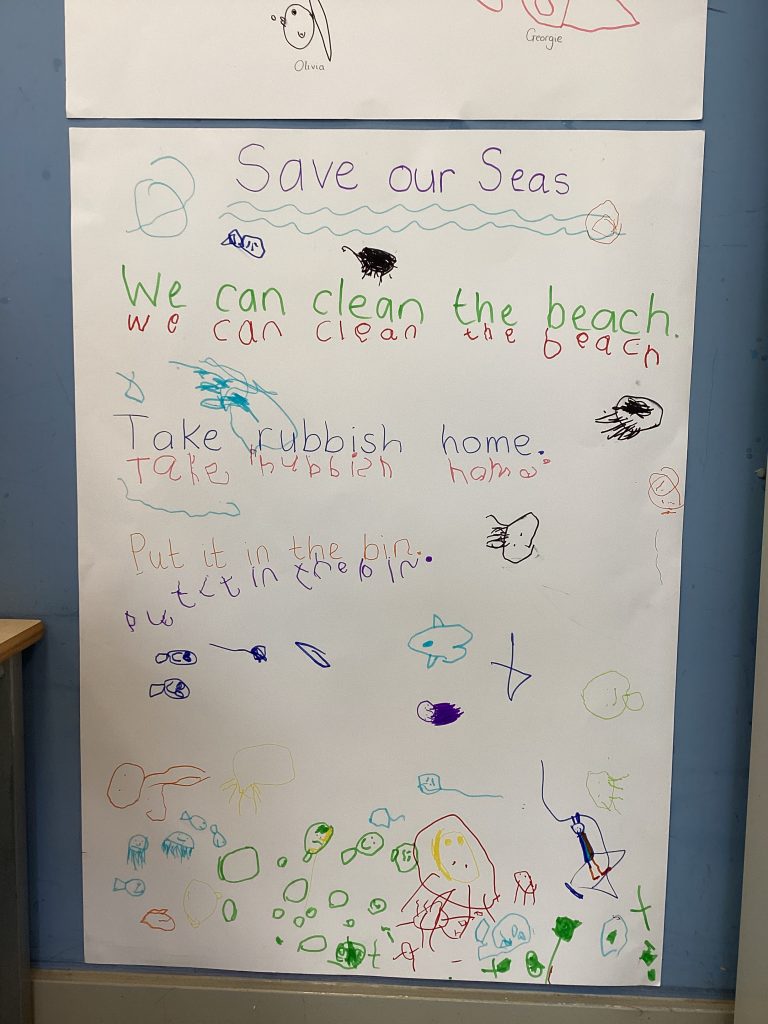 Olivia
Georgie
Save our Seas
We can clean the beach.
we can clean the beach
Take rubbish home.
Take rubbish home.
Put it in the bin.
put it in the bin.